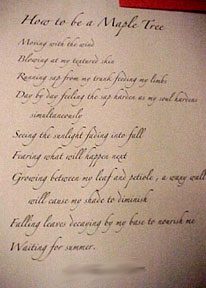 How to be a Maple Tree
Moving with the wind
Blowing at my textured skin
Running sap from my trunk feeding my limbs
Day by day feeling the sap harden as my soul hardens
simultaneously
Seeing the sunlight fading into fall
Fearing what will happen next
Growing between my leaf and petiole, a waxy wall
will cause my shade to diminish
Falling leaves decaying by my base to nourish me
Waiting for summer.